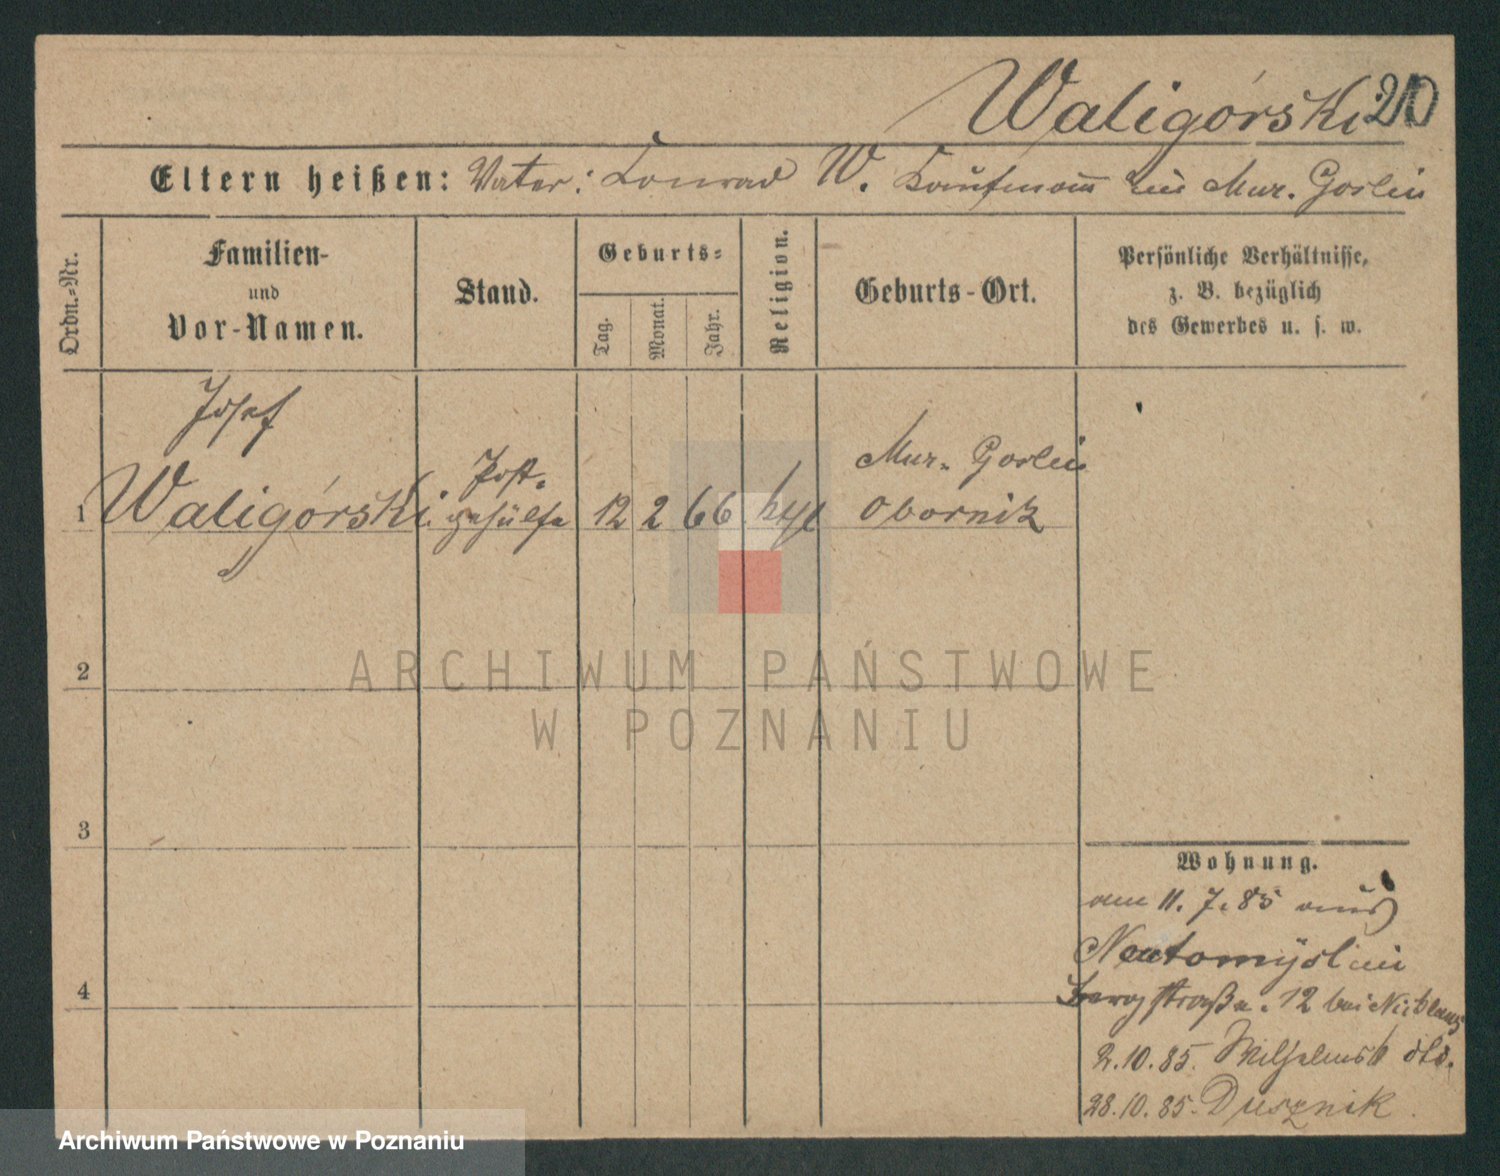 Waligórski 20
Eltern heißen: Vater: Konrad W. Kaufmann in Mur. Goslin
Ordn.-Nr.
Familien-
und
Vor-Namen.
Stand.
Geburts-
Tag.
Monat.
Jahr.
Religion.
Geburts-Ort.
Persönliche Verhältnisse,
z. B. bezüglich
des Gewerbes u. s. w.
Josef
1 Waligórski. Post-
gehülfe 12 2 66 Mur. Goslin
Obornik
2
3
4
Wohnung.
am 11. 7. 85 aus
Neutomysl in
Bergstraße. 12 bei
2.10.85.
28.10.85. Dusznik.
ARCHIWUM PAŃSTWOWE
W POZNANIU
Archiwum Państwowe w Poznaniu